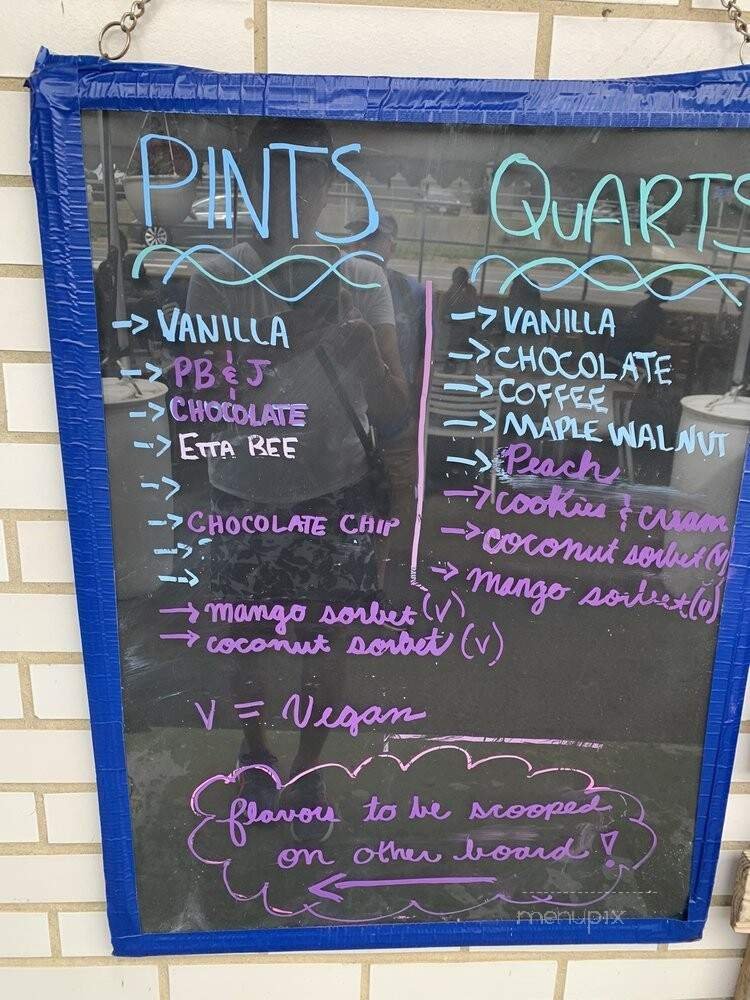 PINTS
-> VANILLA
-> PB & J
-> CHOCOLATE
-> ETTA BEE
->
-> CHOCOLATE CHIP
->
->
-> mango sorbet (v)
-> coconut sorbet (v)
V = Vegan
QUARTS
-> VANILLA
-> CHOCOLATE
-> COFFEE
-> MAPLE WALNUT
-> Peach
-> cookies & cream
-> coconut sorbet (v)
-> mango sorbet (v)
flavors to be scooped
on other board!
menupix